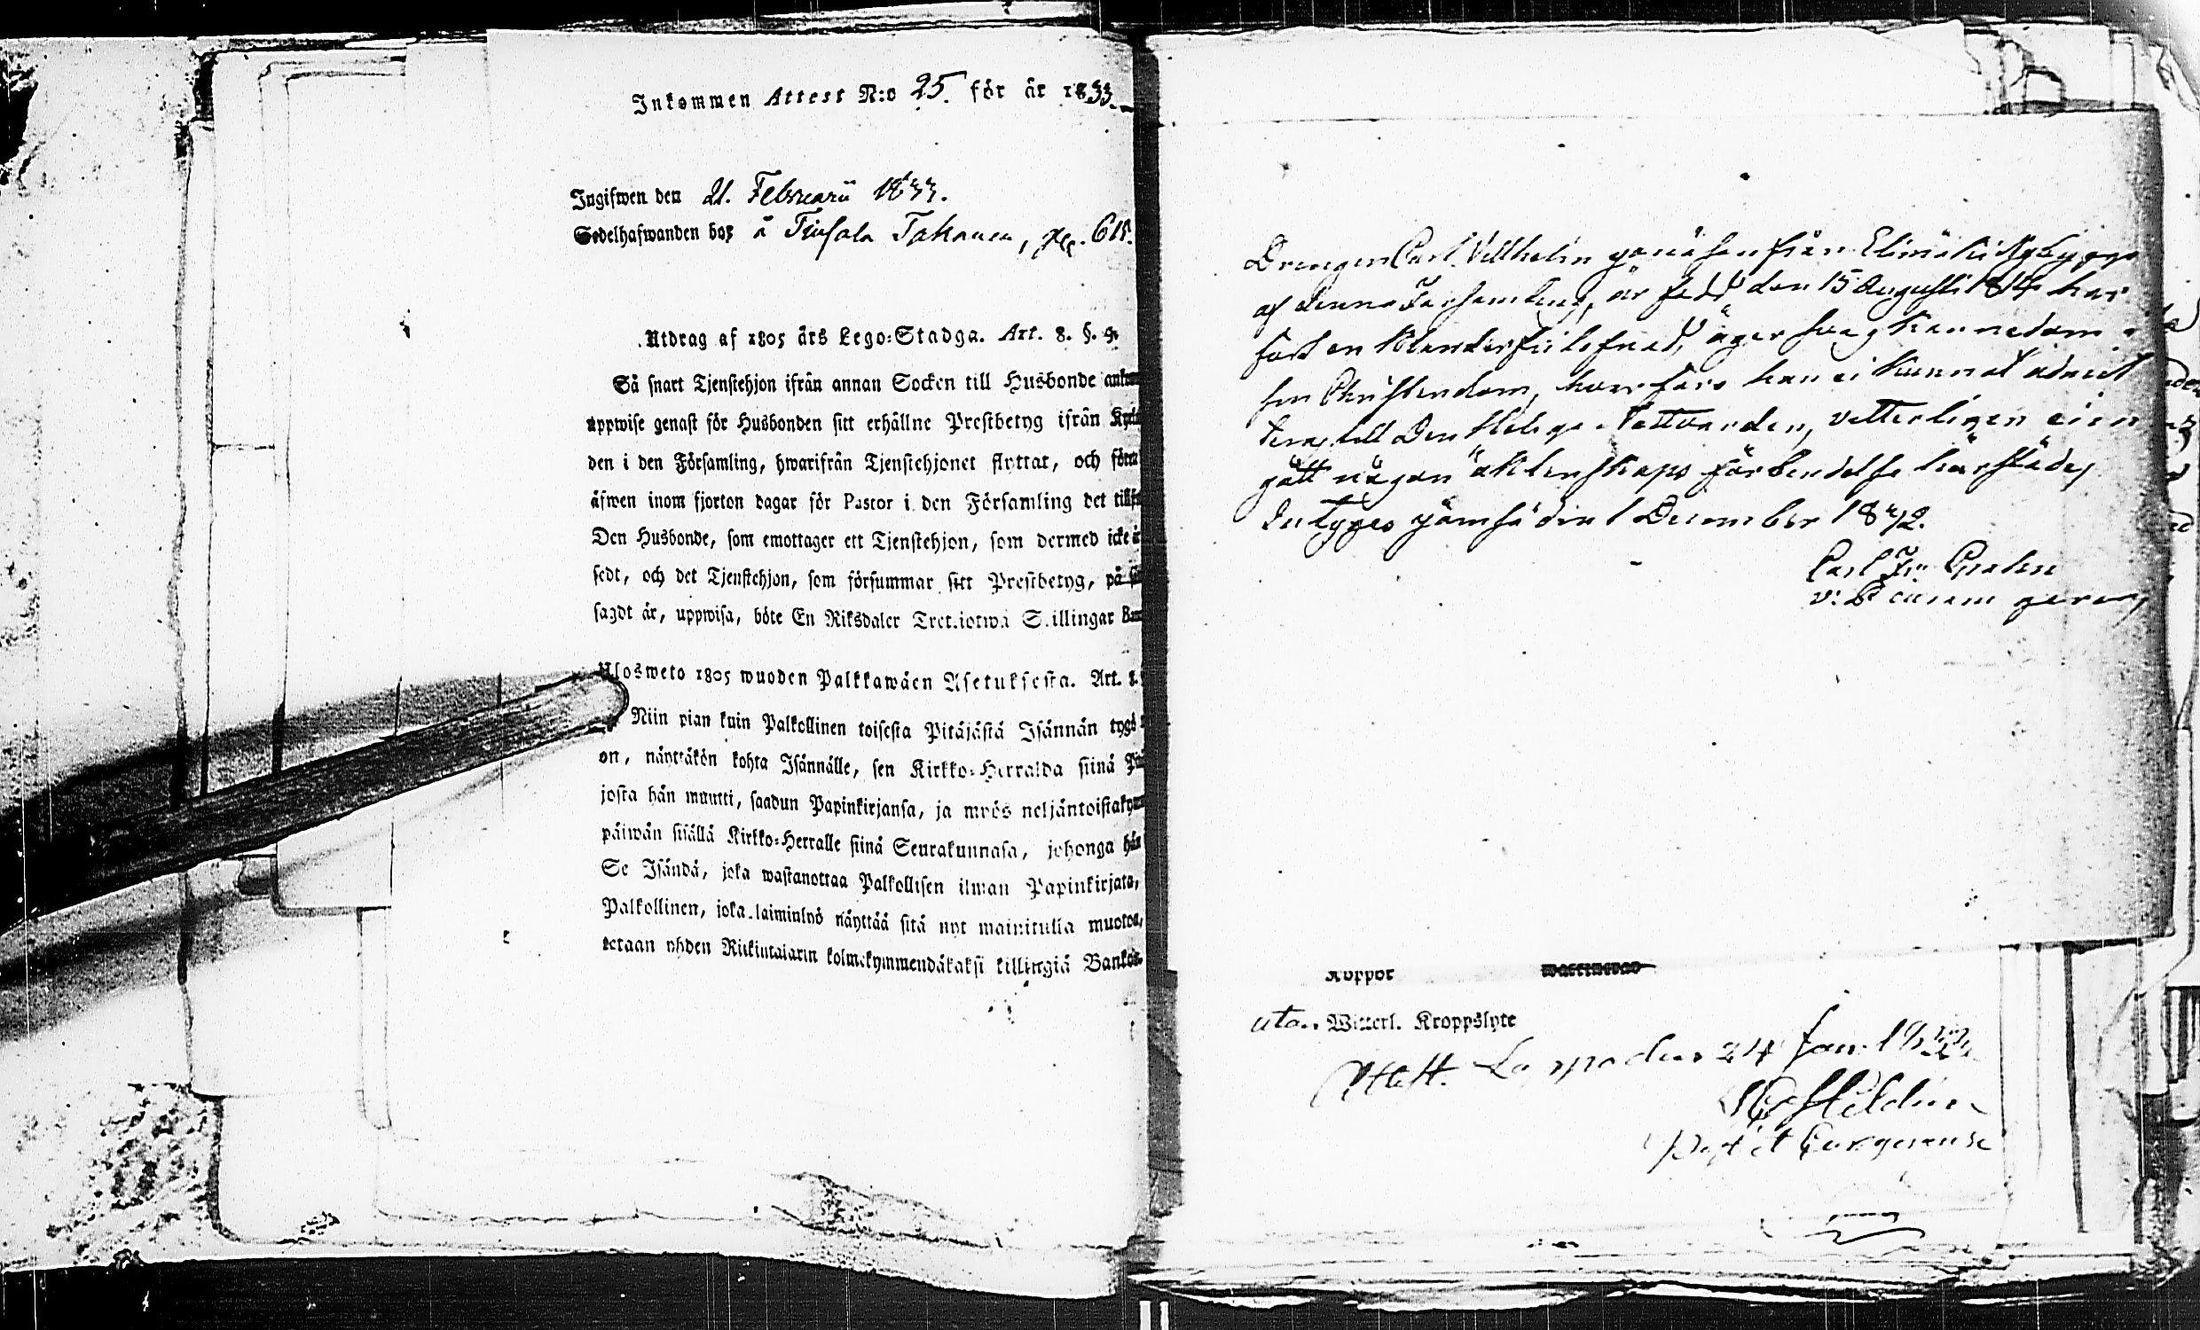 Inkommen Attest N:o 25. för år 1833.
Ingifwen den 21. Februarii 1833.
Sedelhafwanden bor å Tiusala Takanen, 618.
Utdrag af 1805 års Lego-Stadga. Art. 8. §. 9.
Så snart Tjenstehjon ifrån annan Socken till Husbonde
uppwise genast för Husbonden sitt erhållne Prestbetyg ifrån
den i den Församling, hwarifrån Tjenstehjonet flyttat, och
äfwen inom fjorton dagar för Pastor i den Församling det
Den Husbonde, som emottager ett Tjenstehjon, som dermed icke
sedt, och det Tjenstehjon, som försummar sitt Prestbetyg, på
sagdt är, uppwisa, böte En Riksdaler Tretiotwå S.illingar
Ulosweto 1805 wuoden Palkkawäen Asetuksesta. Art. 8.
Niin pian kuin Palkollinen toisesta Pitäjästä Isännän tygö
on, näyttäkön kohta Isännälle, sen Kirkko-Herralda siinä
josta hän muutti, saadun Papinkirjansa, ja myös
päiwän sisällä Kirkko-Herralle siinä Seurakunnasa, johonga hän
Se Isändä, joka wastanottaa Palkollisen ilman Papinkirjata,
Palkollinen, joka laiminlyö näyttää sitä nyt mainitulla muotoa,
tetaan yhden Riikintalarin kolmekymmendäkaksi killingiä Banko-
Drengen Carl Villhelm från Elimäki
af denna Församling, är född den 15 Augusti 18 har
fört en klanderfri lefnad, äger svag kännedom
sin Christendom, hvarföre han ei kunnat
till Den Heliga Nattvarden, vetterligen
gått någon äktenskaps förbindelse härstädes
betygas den 1 December 1832.
Carl Fr.
v:
Koppor
utan Witterl. Kroppslyte
Attest. Lappo den 24 Jan. 1833